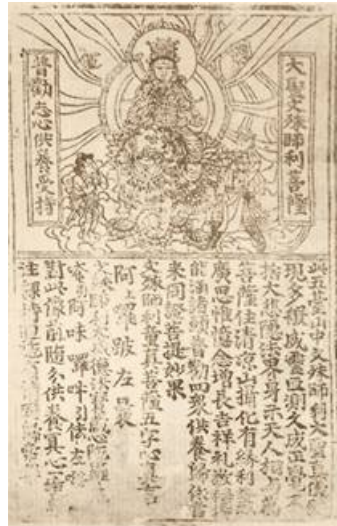 大聖文殊師利菩薩
普勸志心供養受持
此五臺山中文殊師利大聖真儀
現多般威靈叵測久成正覺不
捨大悲隱法界身示天人相與萬
菩薩住清涼山攝化有緣利益
廣思惟憶念增長吉祥禮敬
能滿諸願普勸四眾供養歸依當
來同證菩提妙果
文殊師利童真菩薩五字心真言
阿上囉跛左曩
文殊師利大威德法寶藏心陀羅尼
唵引阿味囉吽引佉左
對此像前隨分供養冀心一